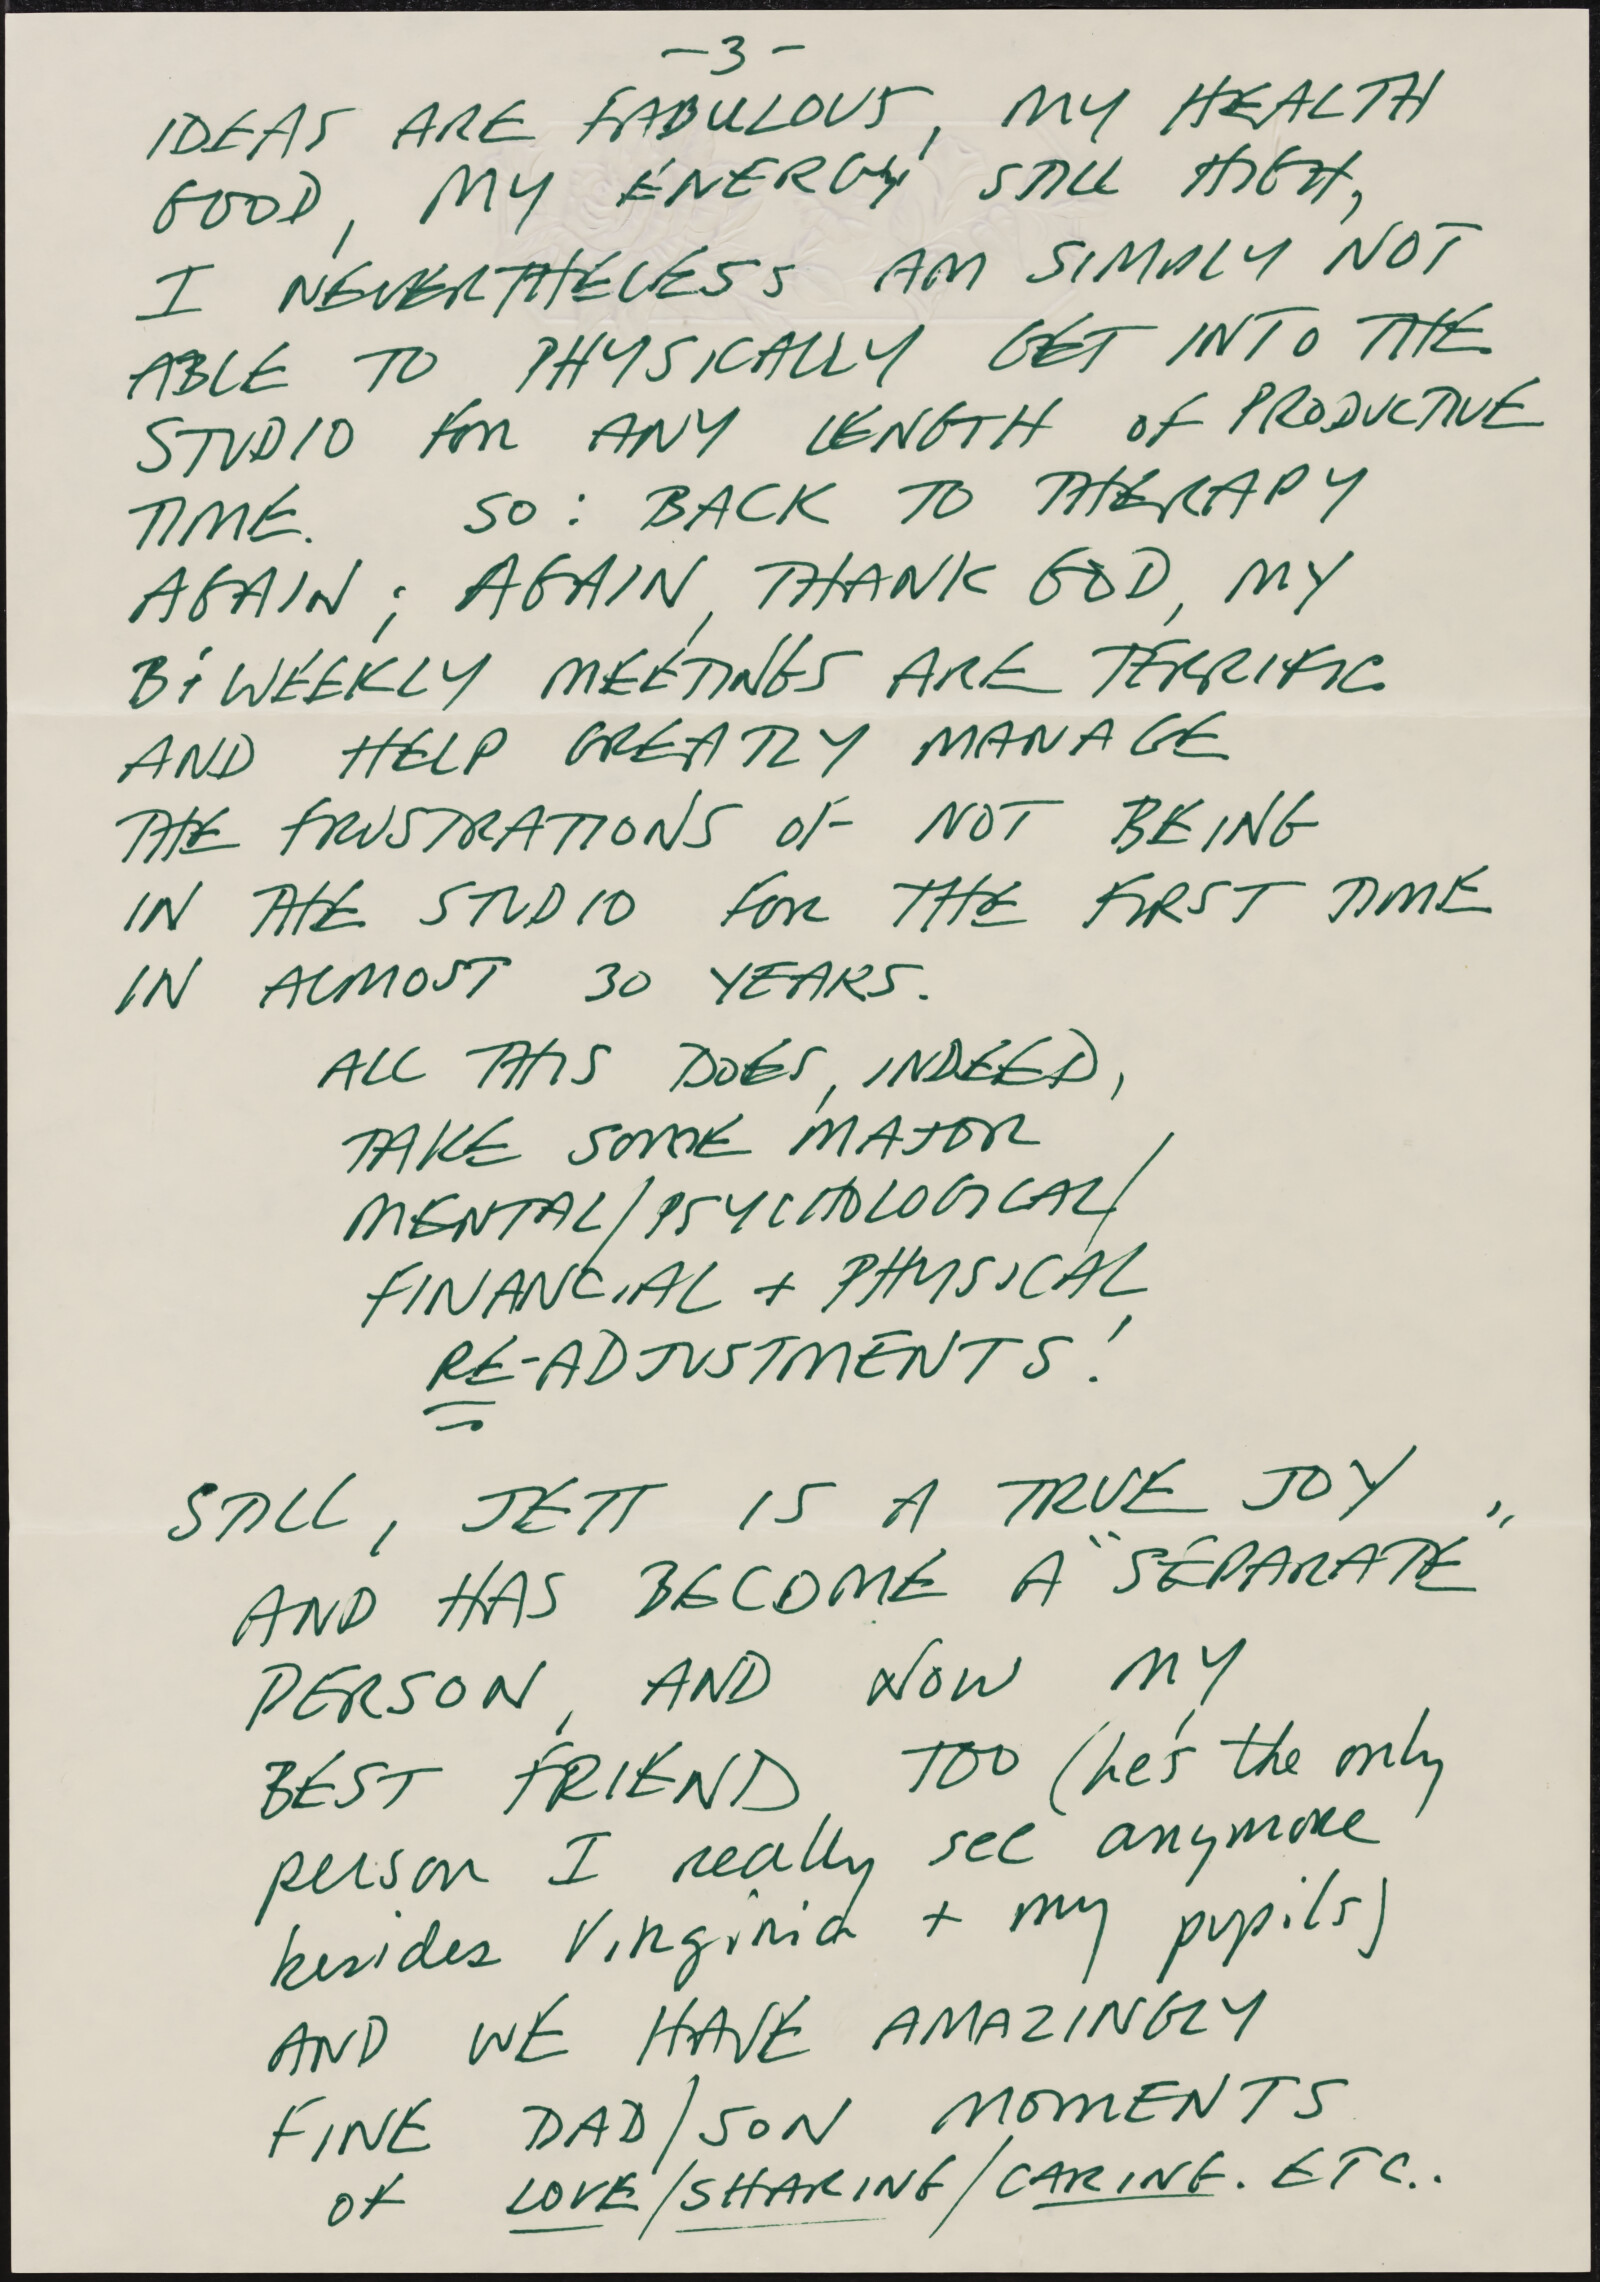 -3-
IDEAS ARE FABULOUS, MY HEALTH
GOOD, MY ENERGY STILL HIGH,
I NEVERTHELESS AM SIMPLY NOT
ABLE TO PHYSICALLY GET INTO THE
STUDIO FOR ANY LENGTH OF PRODUCTIVE
TIME. SO: BACK TO THERAPY
AGAIN; AGAIN, THANK GOD, MY
BiWEEKLY MEETINGS ARE TERRIFIC
AND HELP GREATLY MANAGE
THE FRUSTRATIONS OF NOT BEING
IN THE STUDIO FOR THE FIRST TIME
IN ALMOST 30 YEARS.
ALL THIS DOES, INDEED,
TAKE SOME MAJOR
MENTAL/PSYCHOLOGICAL/
FINANCIAL + PHYSICAL
RE-ADJUSTMENTS!
STILL, JETT IS A TRUE JOY
AND HAS BECOME A "SEPARATE"
PERSON, AND NOW MY
BEST FRIEND TOO (he's the only
person I really see anymore
besides Virginia + my pupils)
AND WE HAVE AMAZINGLY
FINE DAD/SON MOMENTS
OF LOVE/SHARING/CARING. ETC..